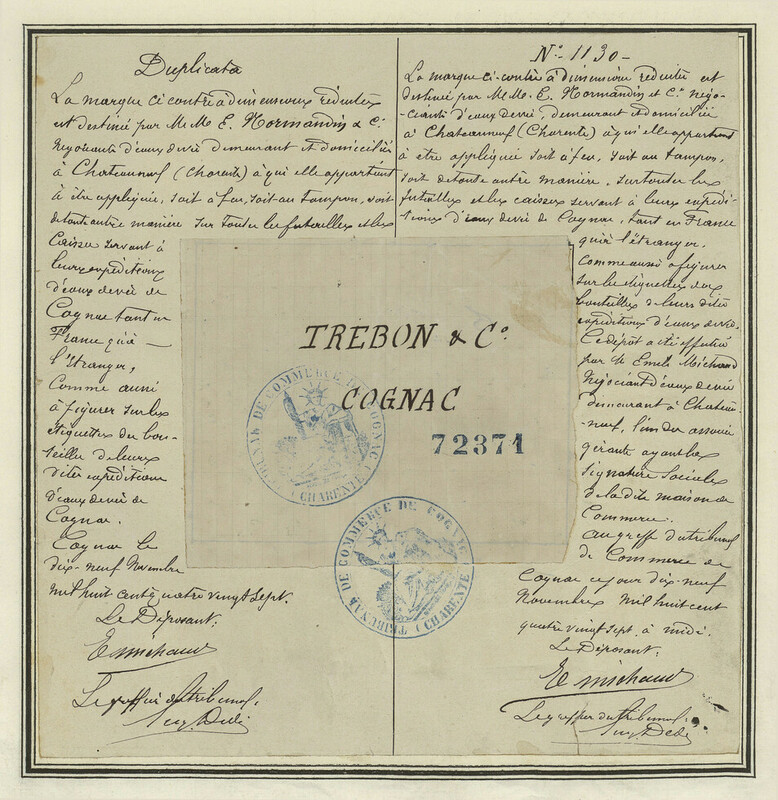 Duplicata
La marque ci contre à dimensions réduites
est destiné par Mr Me E. Normandin & Cie
Négociants d'eaux devie demeurant et domiciliés
à Chateauneuf (Charente) à qui elle appartient
à être appliquée, soit a feu, soit au tampon, soit
de toute autre manière sur toutes les futailles et les
Caisses servant à
leurs expéditions
d'eaux devie de
Cognac tant en
France qu'à
l'Etranger,
Comme aussi
à figurer sur les
etiquettes des bou-
teilles de leurs
dites expéditions
d'eaux devie de
Cognac.
Cognac le
dix-neuf Novembre
mil huit cent quatre vingt sept.
Le Déposant:
E Michaud
Le greffier du tribunal,
No 1130-
La marque ci-contre à dimensions réduites est
destinée par Mr Me. E. Normandin et Cie négo-
ciants d'eaux devie, demeurant et domiciliés
à Chateauneuf (Charente) à qui elle appartient
à être appliquée soit à feu, soit au tampon,
soit de toute autre manière, sur toutes les
futailles et les caisses servant à leurs expédi-
tions d'eaux devie de Cognac, tant en France
qu'à l'étranger,
comme aussi à figurer
sur les étiquettes des
bouteilles de leurs dites
expéditions d'eaux devie.
Ce dépot a été effectué
par M Emile Michaud
Négociant d'eaux devie
demeurant à Chateau-
-neuf, l'un des associés
gérants ayant les
signature Sociales
de la dite maison de
Commerce.
au greffe du tribunal
de Commerce de
Cognac ce jour dix-neuf
Novembre Mil huit cent
quatre vingt sept à midi.
Le Déposant:
E Michaud
Le greffier du tribunal,
TREBON & Co.
COGNAC
72371
TRIBUNAL DE COMMERCE DE COGNAC (CHARENTE)
TRIBUNAL DE COMMERCE DE COGNAC (CHARENTE)